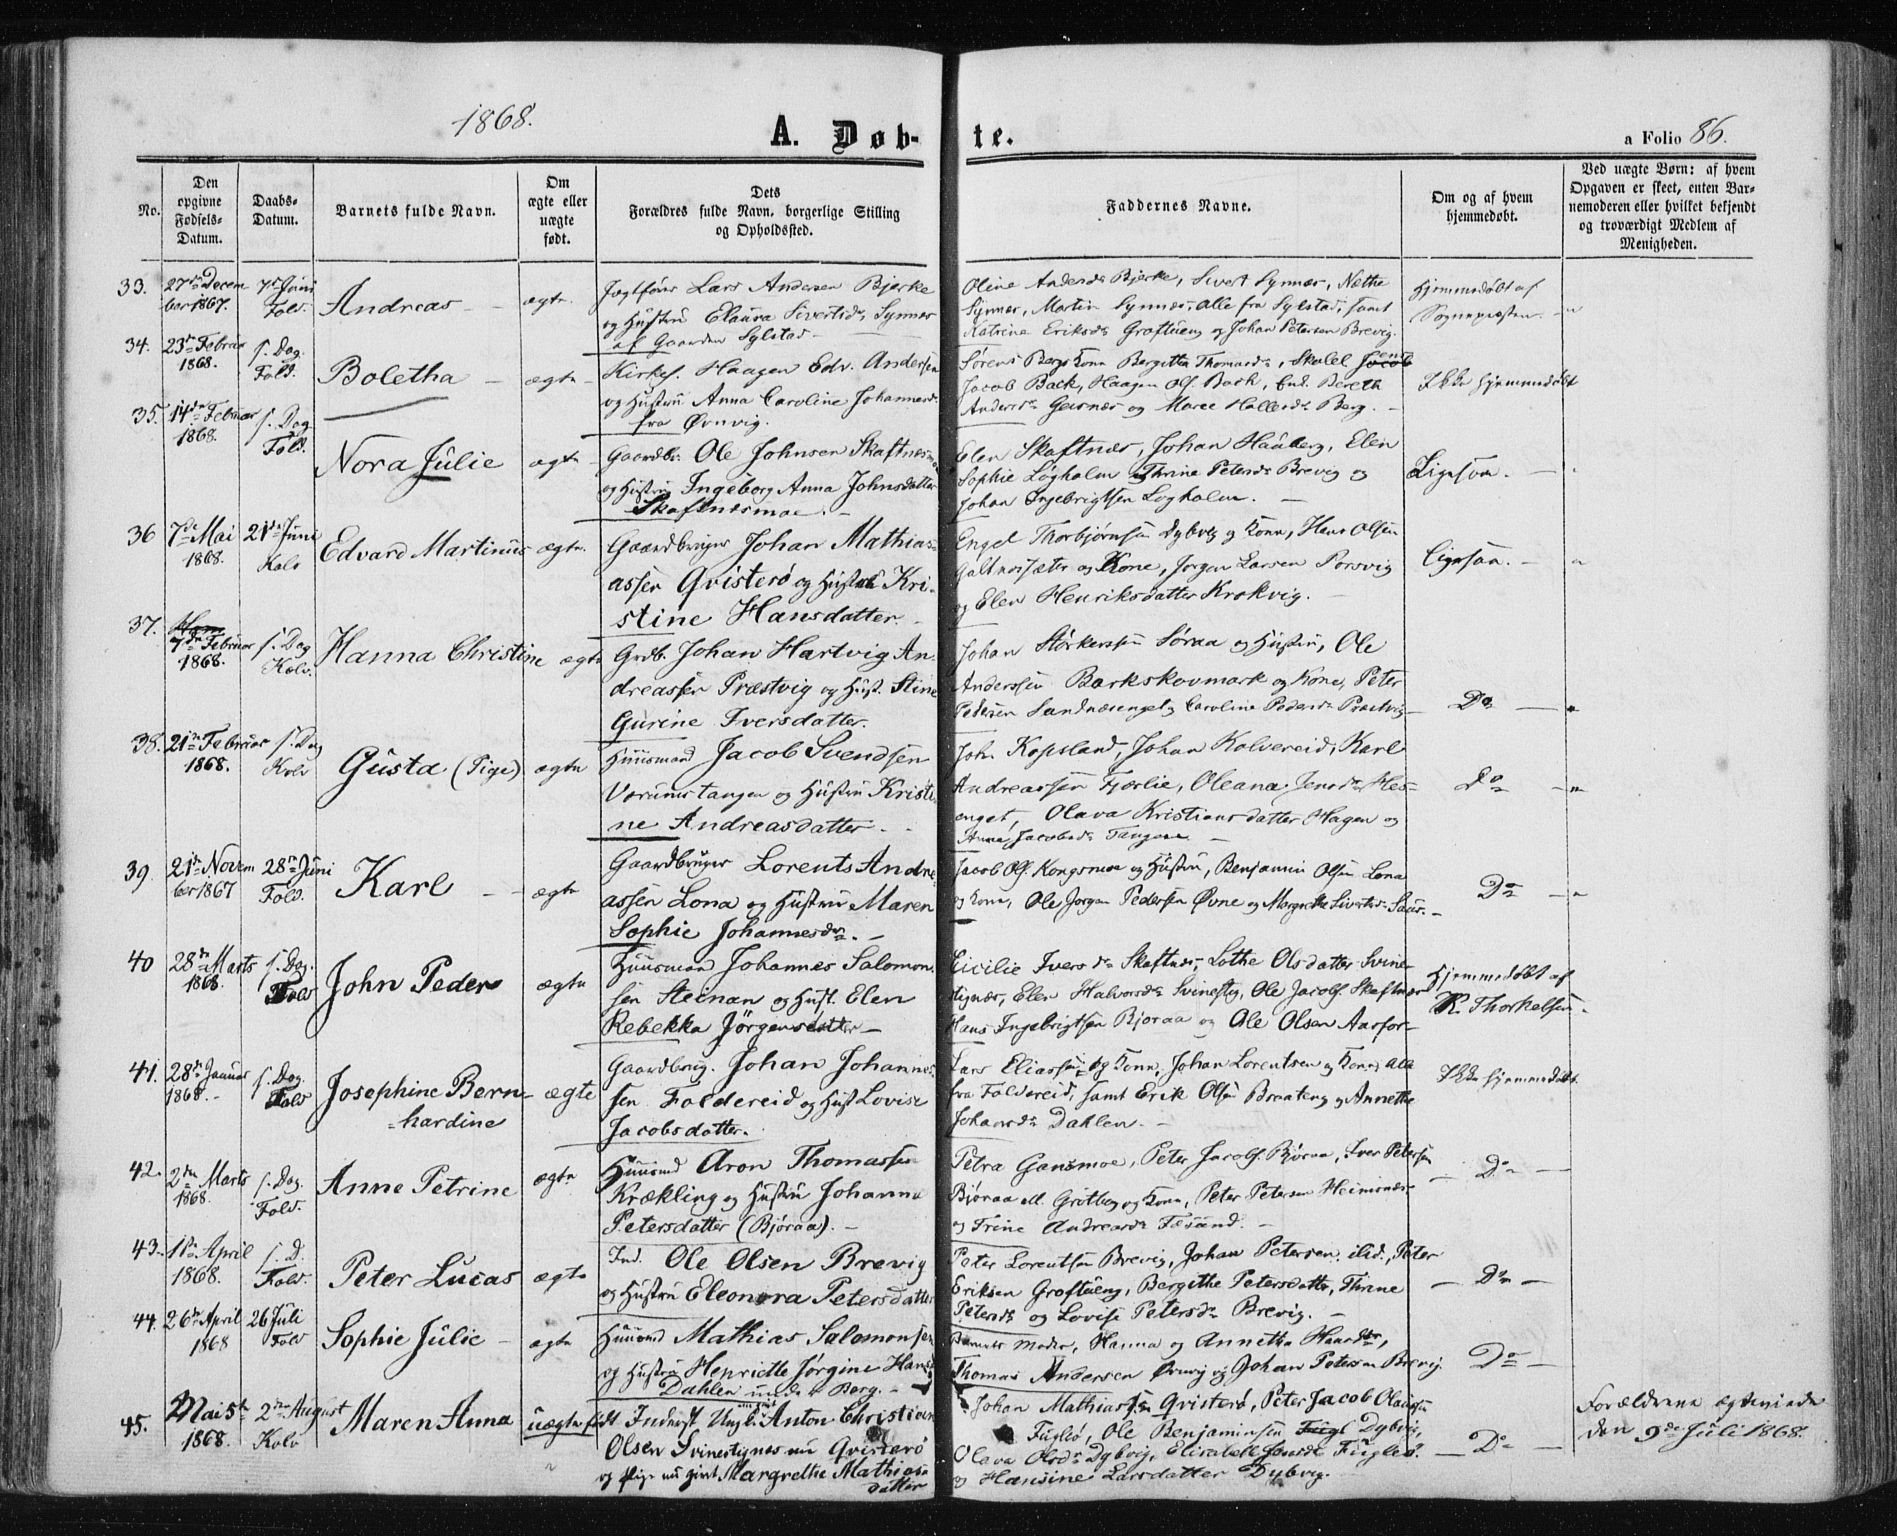 1868.
A. Døb-
te.
a Folio 86.
No.
Den
opgivne
Fødsels-
Datum.
Daabs-
Datum.
Barnets fulde Navn.
Om
ægte eller
uægte
født.
Dets
Forældres fulde Navn, borgerlige Stilling
og Opholdssted.
Faddernes Navne.
Om og af hvem
hjemmedøbt.
Ved uægte Børn: af hvem
Opgaven er skeet, enten Bar-
nemoderen eller hvilket bekjendt
og troværdigt Medlem af
Menigheden.
33.
27de Decem
ber 1867.
7de Juni
Fold.
Andreas
ægte
Jagtfører Lars Andersen Bjerke
og Hustru Elaura Sivertsdr Synnes
af Gaarden Sylstad
Oline Andersdr Bjerke, Sivert Synnes, Nethe
Synnes, Martin Synnes, alle fra Sylstad, samt
Katrine Eriksdr Groftüeng og Johan Petersen Brevig.
Hjemmedøbt af
Sognepræsten.
34.
23de Februar
1868.
s. Dag
Fold.
Boletha
ægte
Kirkes. Haagen Edv. Andersen
og Hustru Anna Caroline Johannesd.
fra Øvnvig.
Jacob Back, Haagen Ols. Back,
Andersdr Geisnes og Maree Hallesdr Berg.
Ikke hjemmedøbt
35.
14de Februar
1868.
s. Dag
Fold.
Nora Julie
ægte
Gaardbr. Ole Johnsen Skaftnesmo
og Hustru Ingeborg Anna Johnsdatter
Skaftnesmoe.
Elen Skaftnes, Johan Haüberg, Elen
Sophie Løgholm, Thrine Petersdr Brevig og
Johan Ingebrigtsen Løgholm.
Ligesom.
36
7de Mai
1868.
21de Juni
Kolv
Edvard Martinus
ægte.
Gaardbruger Johan Mathias-
assen Qvisterø og Hustru Kri-
stine Hansdatter.
Engel Thorbjørnsen Dybvig og Kone, Hans Olsen
Galtnessæter og Kone, Jørgen Larsen Porsvig
og Elen Henriksdatter Krokvig.
Ligesom.
37.
7de Februar
1868.
s. Dag
Kolv.
Hanna Christine
ægte
Grdb. Johan Hartvig An-
dreassen Præstvig og Hust. Stine
Gurine Iversdatter.
Johan Størkersen Søraa og Hustru, Ole
Anderssen Barkskovmark og Kone, Peter
Pedersen Sandnæsenget og Caroline Pedersdr Præstvig
Do
38.
21de Februar
1868.
s. Dag
Kolv
Gusta (Pige)
ægte
Huusmand Jacob Svendsen
Varumstangen og Hustru Kristi-
ne Andreasdatter.
John Kopsland, Johan Kolvereid, Karl
Andreassen Fjærlie, Oleana Jensdr Hes-
enget, Olava Kristiansdatter Hagen og
Anna Jacobsdr Tangene
Do
39.
21de Novem
ber 1867
28de Juni
Fold.
Karl
ægte
Gaardbruger Lorents Andre-
assen Lona og Hustru Maren
Sophie Johannesdr.
Jacob Ols. Kongsmoe og Hustru, Benjamin Olsen Lona
og Kone, Ole Jørgen Pedersen Øvne og Margrethe Sivertsdr
Do
40
28de Marts
1868.
s. Dag.
Fold
John Peder
ægte
Huusmand Johannes Salomon-
sen Steinan og Hust. Elen
Rebekka Jørgensdatter
Cicilie Iversdr Skaftnes, Lothe Olsdatter Svine-
stignæs, Elen Halvorsdr Svinestig, Ole Jacobs. Skaftnes
Hans Ingebrigtsen Bjøraa og Ole Olsen Aarfor
Hjemmedøbt af
K. Thorkelsen.
41.
28de Januar
1868.
s. Dag.
Fold
Josephine Bern-
hardine
ægte
Gaardbrug. Johan Johannes-
sen Foldereid og Hust Lovise
Jacobsdatter.
Lars Eliassen og Kone, Johan Lorentsen og Kone, alle
fra Foldereid, samt Erik Olsen Braateng og Annethe
Johansdr Dahlen.
Ikke hjemmedøbt.
42.
2den Marts
1868.
s. Dag.
Fold.
Anne Petrine
ægte
Huusmd Aron Thomassen
Krækling og Hustru Johanna
Petersdatter (Bjøraa).
Petra Gansmoe, Peter Jacobs. Bjøraa, Iver Petersen
Bjøraa ell. Grötberg og Kone, Peter Petersen Heimsnes
og Trine Andreasdr Fæsand.
Do
43.
11te April
1868.
s. D.
Fold.
Peter Lucas
ægte
Ind. Ole Olsen Brevig
og Hustru Eleonora Petersdatter
Peter Lorentsen Brevig, Johan Petersen ibid., Peter
Eriksen Groftüeng, Bergithe Petersdatter, Thrine
Petersdr og Lovise Petersdr Brevig.
Do
44.
26de April
1868
26 Juli
Fold
Sophie Julie
ægte
Huusmd Mathias Salomonsen
og Hustru Henriette Jørgine Hansd.
Dahlen under Borg.
Barnets Moder, Hanna og Annetha Hansdtr,
Thomas Andersen Ørnvig og Johan Petersen Brevig.
Do
45.
Mai 5te
1868.
2den August
Kolv
Maren Anna
uægte født
Inderst Ungk. Anton Christian
Olsen Svinestignes nu Qvisterø
og Pige nu givt Margrethe Mathias-
datter
Johan Mathiassen Qvisterø, Peter Jacob Olausen
Fuglø, Ole Benjaminsen Dybvig,
Olava Olsdr Dybvig, Elisabeth Jensdr Fuglø
og Hansine Larsdatter Dybvig.
Do
Forældrene ægteviede
den 9de Juli 1868.